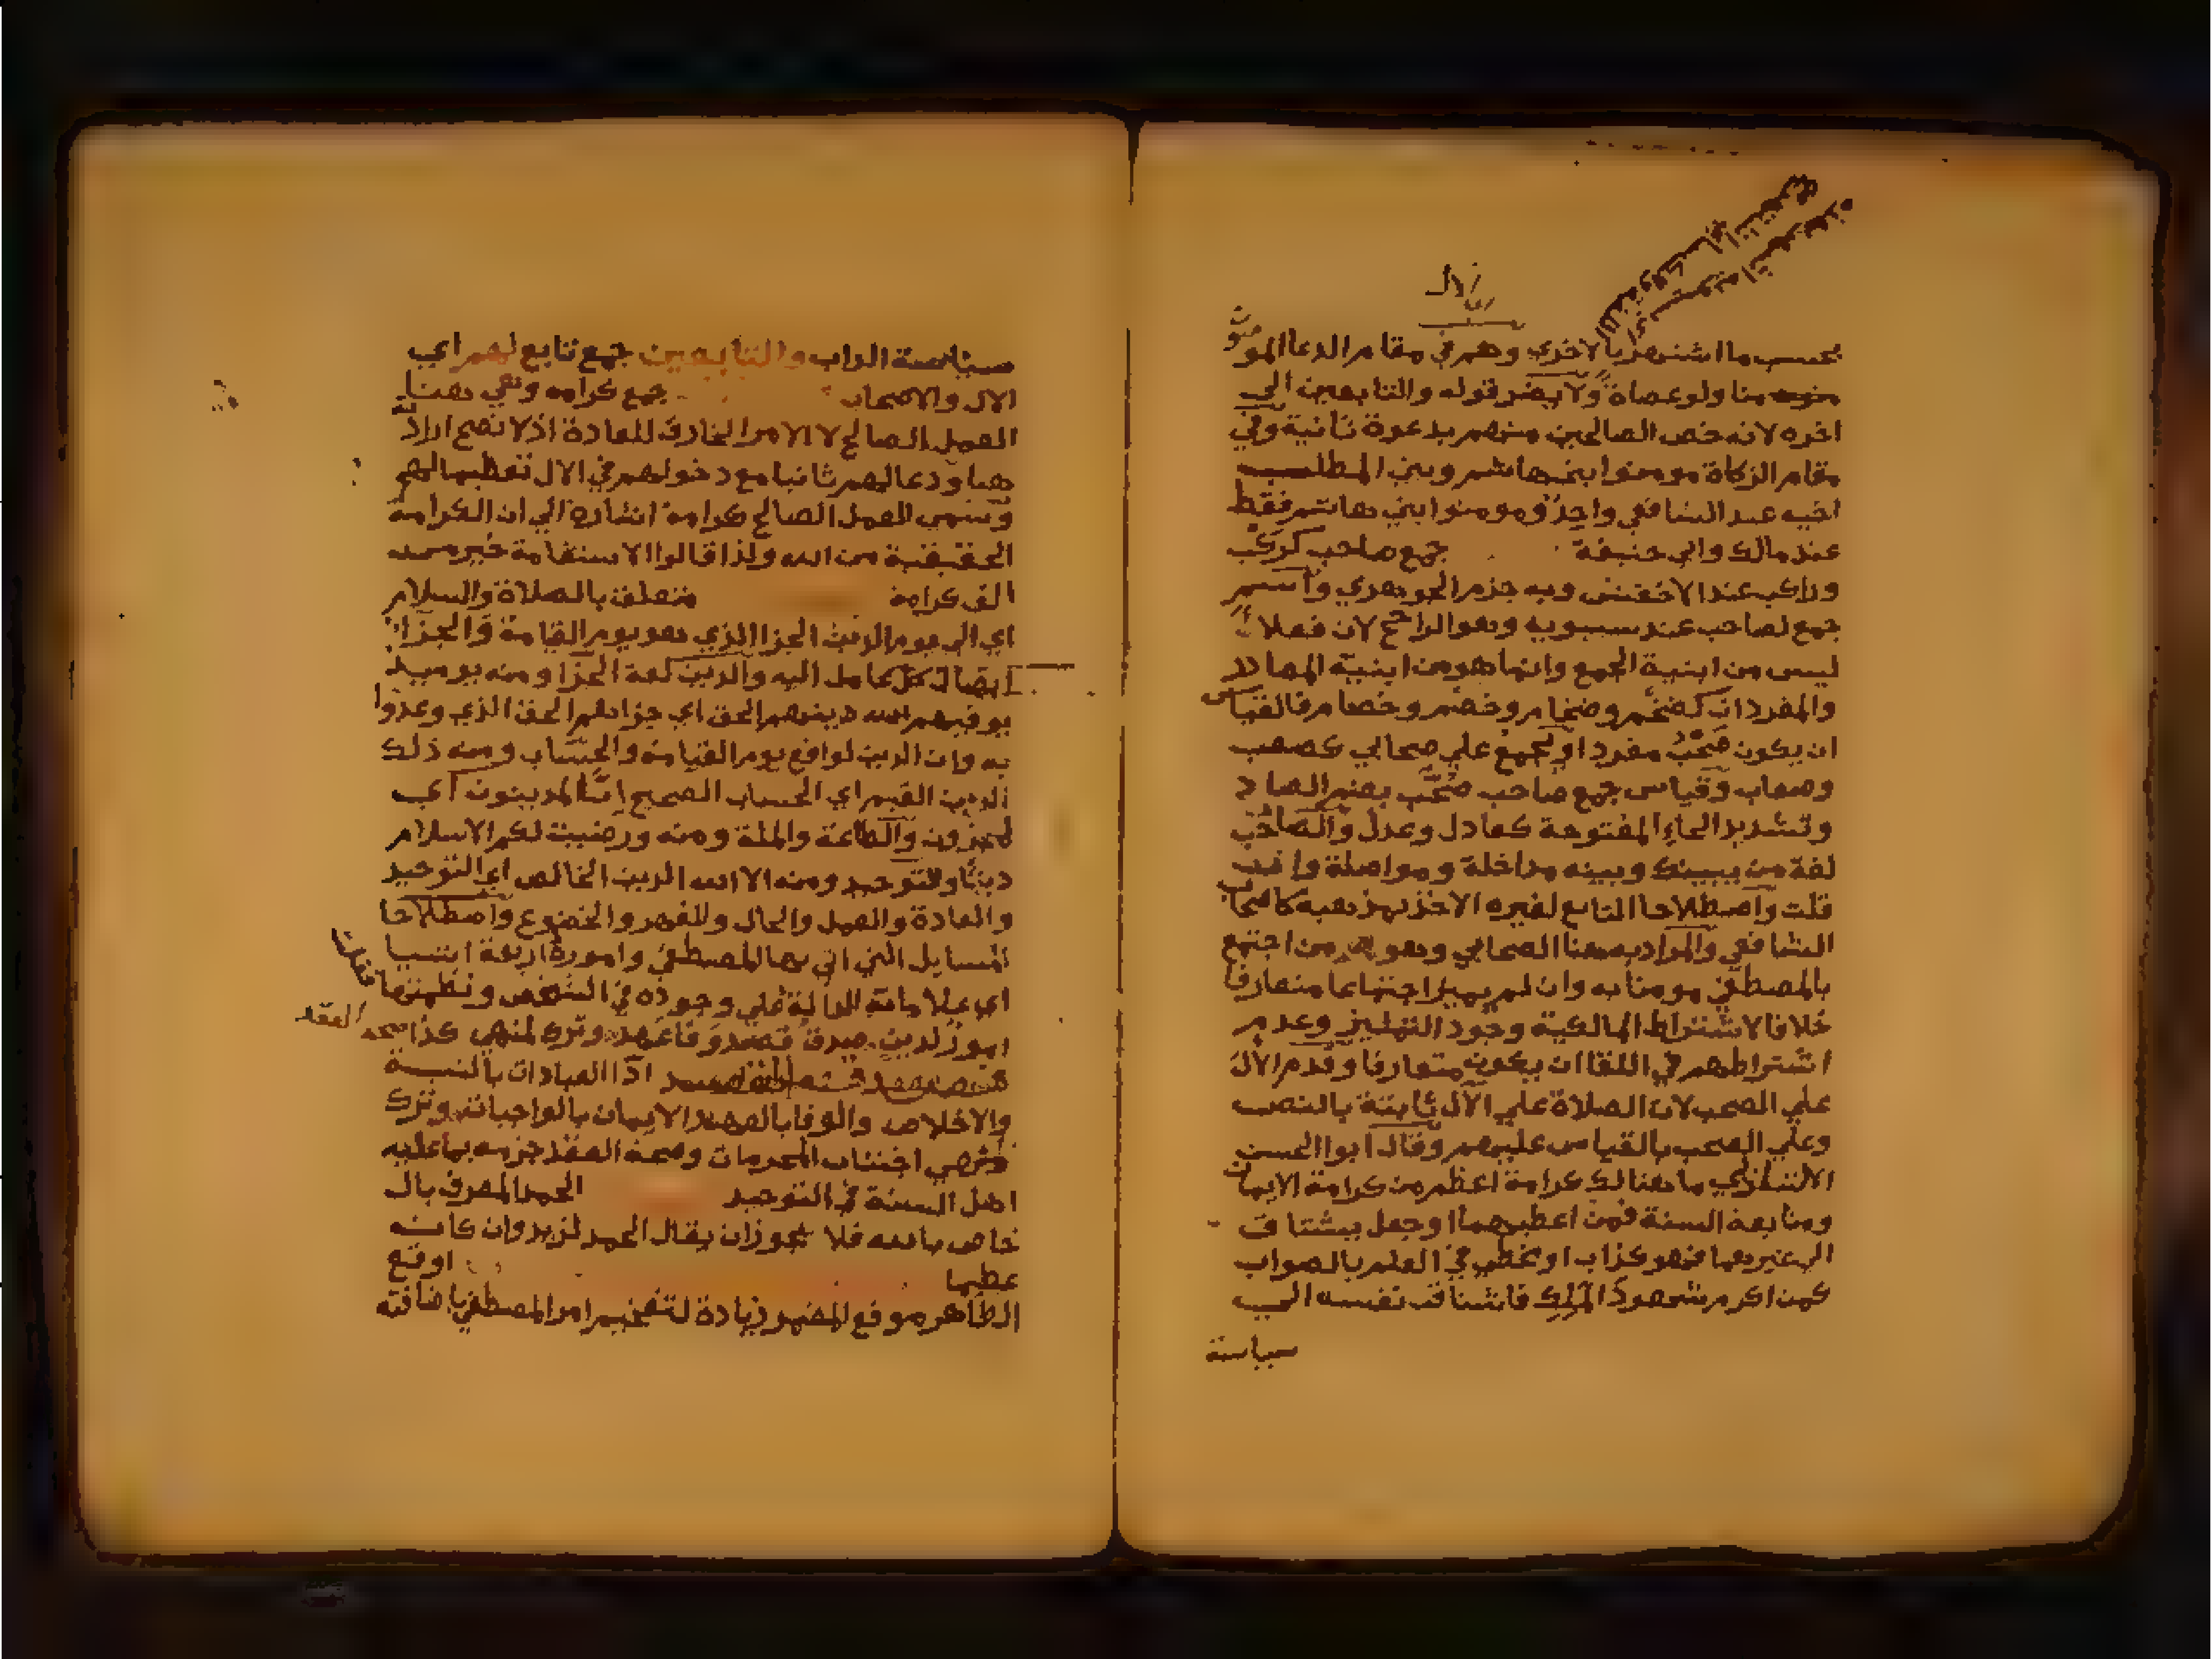 بحسب ما اشتهر بالاخري وهم في مقام الدعا المومنون
منا ولو عصاة ولا يضر قوله والتابعين الي
اخره لانه خص الصالحين منهم بدعوة ثانية وفي
مقام الزكاة مومنوا بني هاشم وبني المطلب
اخيه عند الشافعي واحِدُ ومومنوا بني هاشم فقط
عند مالك وابي حنيفة جمع صاحب كركب
وراكب عند الاخفش وبه جزم الجوهري واسم
جمع لصاحب عند سيبويه وهو الراجح لان فعلا
ليس من ابنية الجمع وانما هو من ابنية المصادر
والمفردات كضخم وضخام وخصم وخصام فالقياس
ان يكون صَحْبُ مفردا ويجمع علي صحابي كصعب
وصعاب وقياس جمع صاحب صُحَّب بضم الصاد
وتشديد الحاء المفتوحة كعادل وعدل والصاحب
لغة من بينك وبينه مداخلة ومواصلة وان
قلت واصطلاحا التابع لغيره الاخذ بمذهبه كاصحاب
الشافعي والمراد به هنا الصحابي وهو من اجتمع
بالمصطفي مومنا به وان لم يميز اجتماعا متعارفا
خلافا لاشتراط المالكية وجود التمييز وعدم
اشتراطهم في اللقا ان يكون متعارفا وقدم الآل
علي الصحب لان الصلاة علي الآل ثابتة بالنص
وعلي الصحب بالقياس عليهم وقال ابوا الحسن
الشاذلي ما هنالك كرامة اعظم من كرامة الايمان
ومتابعة السنة فمن اعطيهما وجعل يشتاق
الي غيرهما فهو كذاب او مخطي في العلم بالصواب
كمن اكرم بشهود الملك فاشتاقت نفسه الي
سياسة
سياسة الداب والتابعين جمع تابع لهم اي
الال والاصحاب جمع كرامه وهي هنا
العمل الصالح لا الامر الخارق للعادة اذ لا تصح ارادته
هنا ودعا لهم ثانيا مع دخولهم في الال تعظيما لهم
وسمي العمل الصالح كرامة اشارة الي ان الكرامة
الحقيقية من الله ولذا قالوا الاستقامة خير من
الف كرامة متعلق بالصلاة والسلام
اي الي يوم الدين الجزا الذي هو يوم القيامة والجزا
ايصال كل عامل اليه والدين لغة الجزا ومنه يوميد
يوفيهم الله دينهم الحق اي جزاهم الحق الذي وعدوا
به وان الدين لواقع يوم القيامة والحساب ومنه ذلك
الدين القيم اي الحساب الصحيح انا لمدينون اي
لمجزون والطاعة والملة ومنه ورضيت لكم الاسلام
دينا والتوحيد ومنه الا لله الدين الخالص اي التوحيد
والعادة والعمل والحال والقهر والخضوع واصطلاحا
المسايل التي اتي بها المصطفي واموره اربعة اشيا
اي علاماته الدالة علي وجوده في الشخص ونظمتها فقلت
امور لدين صدق قصد وفا عهد وترك لمنهي كذا صحه العقد
ادا العبادات بالنسبة
والاخلاص والوفا بالعهد الايمان بالواجبات وترك
اجتناب المحرمات وصحة العقد جزمه بما عليه
اهل السنة في التوحيد الحمد المعرف بال
خاص بالله فلا يجوز ان يقال الحمد لزيد وان كان
عظيما اوقع
الظاهر موقع المضمر زيادة لتفخيم امر المصطفي باضافته